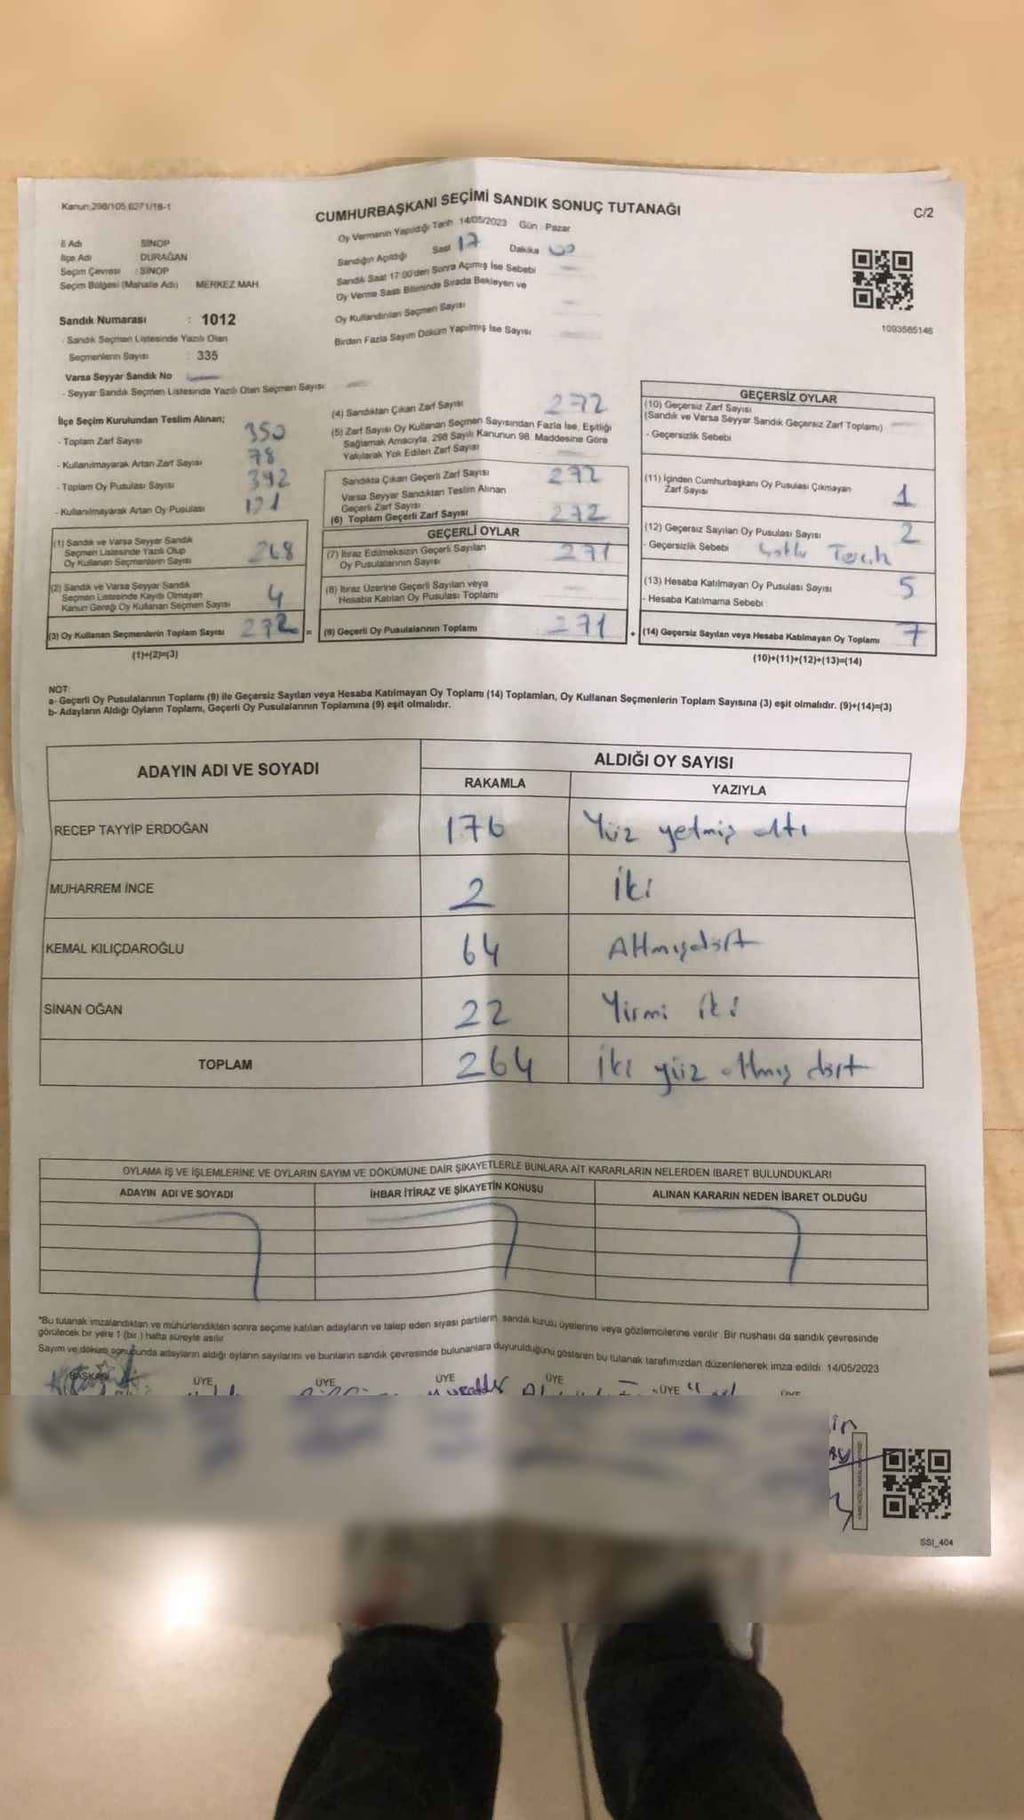 Kanun:298/105,6271/18-1
CUMHURBAŞKANI SEÇİMİ SANDIK SONUÇ TUTANAĞI
C/2
Oy Vermenin Yapıldığı Tarih 14/05/2023 Gün : Pazar
İl Adı SİNOP
İlçe Adı DURAĞAN
Seçim Çevresi : SİNOP
Seçim Bölgesi (Mahalle Adı) MERKEZ MAH.
Sandığın Açıldığı Saat 17 Dakika 00
Sandık Saat 17:00'den Sonra Açılmış İse Sebebi
Oy Verme Saati Bitiminde Sırada Bekleyen ve
Oy Kullandırılan Seçmen Sayısı
Birden Fazla Sayım Döküm Yapılmış İse Sayısı
1093565146
Sandık Numarası : 1012
- Sandık Seçmen Listesinde Yazılı Olan
Seçmenlerin Sayısı : 335
Varsa Seyyar Sandık No
- Seyyar Sandık Seçmen Listesinde Yazılı Olan Seçmen Sayısı
İlçe Seçim Kurulundan Teslim Alınan;
- Toplam Zarf Sayısı 350
- Kullanılmayarak Artan Zarf Sayısı 78
- Toplam Oy Pusulası Sayısı 392
- Kullanılmayarak Artan Oy Pusulası 121
(1) Sandık ve Varsa Seyyar Sandık
Seçmen Listesinde Yazılı Olup
Oy Kullanan Seçmenlerin Sayısı 268
(2) Sandık ve Varsa Seyyar Sandık
Seçmen Listesinde Kayıtlı Olmayan
Kanun Gereği Oy Kullanan Seçmen Sayısı 4
(3) Oy Kullanan Seçmenlerin Toplam Sayısı 272 =
(1)+(2)=(3)
(4) Sandıktan Çıkan Zarf Sayısı 272
(5) Zarf Sayısı Oy Kullanan Seçmen Sayısından Fazla İse, Eşitliği
Sağlamak Amacıyla, 298 Sayılı Kanunun 98. Maddesine Göre
Yakılarak Yok Edilen Zarf Sayısı
Sandıkta Çıkan Geçerli Zarf Sayısı 272
Varsa Seyyar Sandıktan Teslim Alınan
Geçerli Zarf Sayısı
(6) Toplam Geçerli Zarf Sayısı 272
GEÇERLİ OYLAR
(7) İtiraz Edilmeksizin Geçerli Sayılan
Oy Pusulalarının Sayısı 271
(8) İtiraz Üzerine Geçerli Sayılan veya
Hesaba Katılan Oy Pusulası Toplamı
(9) Geçerli Oy Pusulalarının Toplamı 271 +
GEÇERSİZ OYLAR
(10) Geçersiz Zarf Sayısı
(Sandık ve Varsa Seyyar Sandık Geçersiz Zarf Toplamı)
- Geçersizlik Sebebi
(11) İçinden Cumhurbaşkanı Oy Pusulası Çıkmayan
Zarf Sayısı 1
(12) Geçersiz Sayılan Oy Pusulası Sayısı 2
- Geçersizlik Sebebi
(13) Hesaba Katılmayan Oy Pusulası Sayısı 5
- Hesaba Katılmama Sebebi
(14) Geçersiz Sayılan veya Hesaba Katılmayan Oy Toplamı 7
(10)+(11)+(12)+(13)=(14)
NOT:
a- Geçerli Oy Pusulalarının Toplamı (9) ile Geçersiz Sayılan veya Hesaba Katılmayan Oy Toplamı (14) Toplamları, Oy Kullanan Seçmenlerin Toplam Sayısına (3) eşit olmalıdır. (9)+(14)=(3)
b- Adayların Aldığı Oyların Toplamı, Geçerli Oy Pusulalarının Toplamına (9) eşit olmalıdır.
ADAYIN ADI VE SOYADI
ALDIĞI OY SAYISI
RAKAMLA YAZIYLA
RECEP TAYYİP ERDOĞAN 176 Yüz yetmiş altı
MUHARREM İNCE 2 İki
KEMAL KILIÇDAROĞLU 64 Altmışdört
SİNAN OĞAN 22 Yirmi iki
TOPLAM 264 İki yüz altmış dört
OYLAMA İŞ VE İŞLEMLERİNE VE OYLARIN SAYIM VE DÖKÜMÜNE DAİR ŞİKAYETLERLE BUNLARA AİT KARARLARIN NELERDEN İBARET BULUNDUKLARI
ADAYIN ADI VE SOYADI İHBAR İTİRAZ VE ŞİKAYETİN KONUSU ALINAN KARARIN NEDEN İBARET OLDUĞU
*Bu tutanak imzalandıktan ve mühürlendikten sonra seçime katılan adayların ve talep eden siyasi partilerin, sandık kurulu üyelerine veya gözlemcilerine verilir. Bir nushası da sandık çevresinde
görülecek bir yere 1 (bir ) hafta süreyle asılır
Sayım ve döküm sonucunda adayların aldığı oyların sayılarını ve bunların sandık çevresinde bulunanlara duyurulduğunu gösteren bu tutanak tarafımızdan düzenlenerek imza edildi. 14/05/2023
BAŞKAN ÜYE ÜYE ÜYE ÜYE ÜYE ÜYE
SSI_404